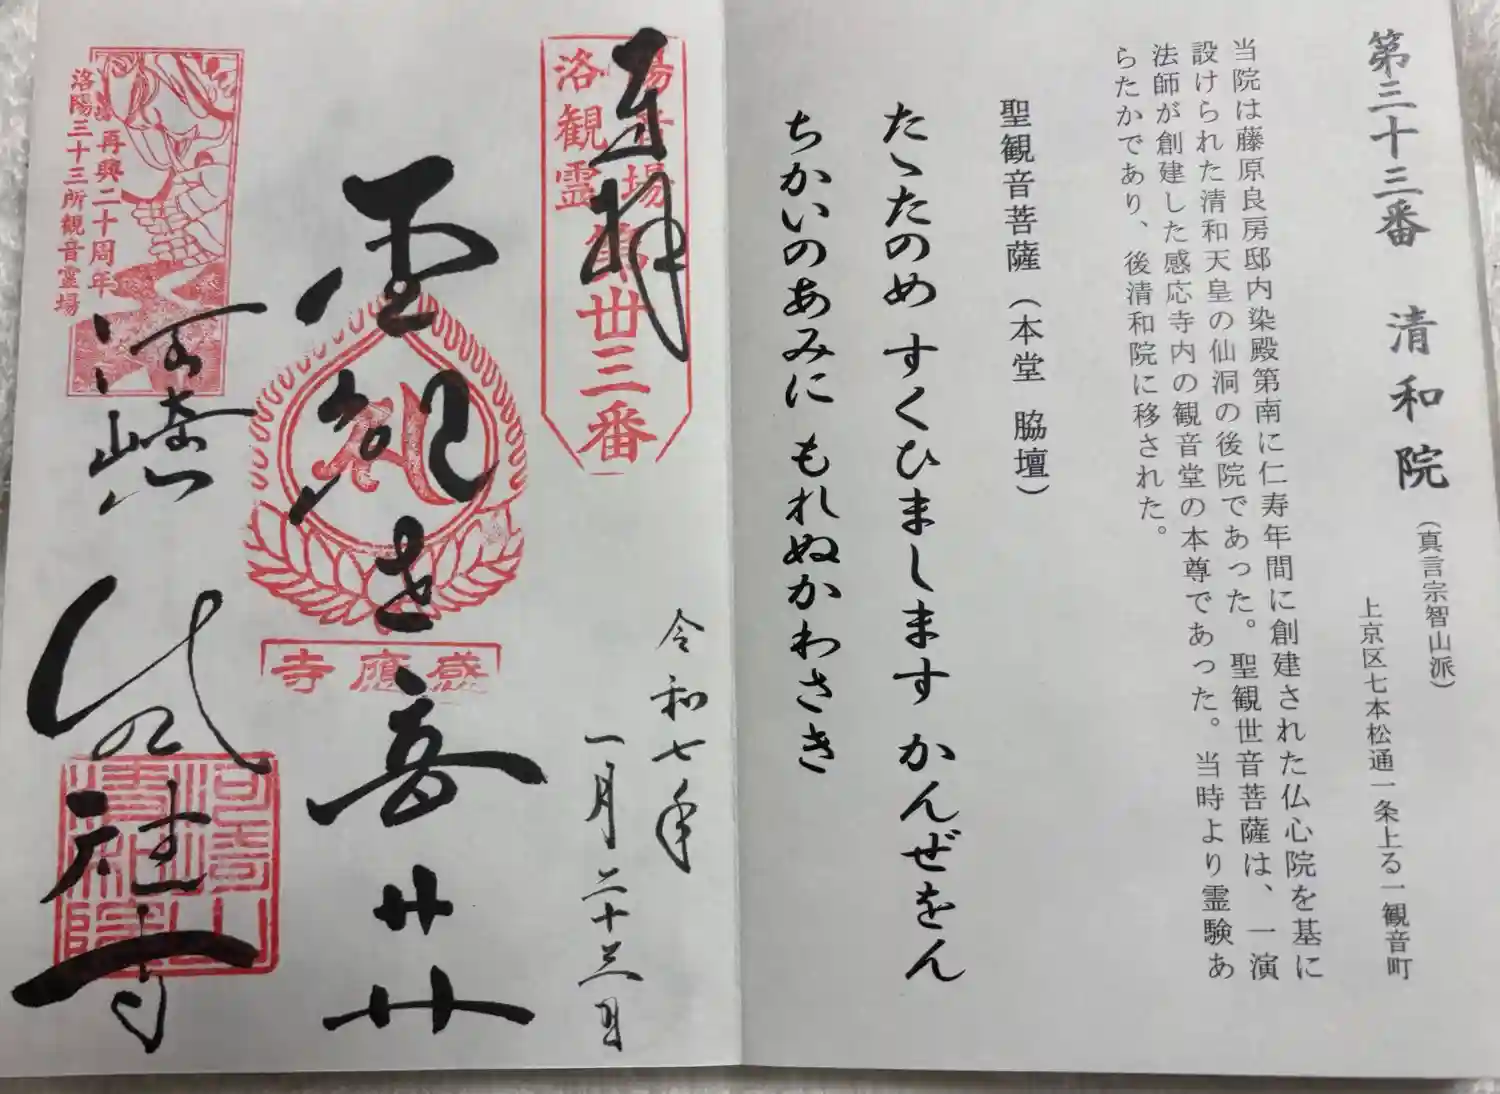 第三十三番 清和院
(真言宗智山派)
上京区七本松通一条上る一観音町
当院は藤原良房邸内染殿第南に仁寿年間に創建された仏心院を基に
設けられた清和天皇の仙洞の後院であった。聖観世音菩薩は、一演
法師が創建した感応寺内の観音堂の本尊であった。当時より霊験あ
らたかであり、後清和院に移された。
聖観音菩薩(本堂 脇壇)
たゝたのめ すくひまします かんぜをん
ちかいのあみに もれぬかわさき
奉拝
洛陽観音霊場
第丗三番
令和七年
一月二十三日
聖観世音廾廾
感應寺
河崎
感應寺
河崎山
清和院
再興二十周年
洛陽三十三所観音霊場